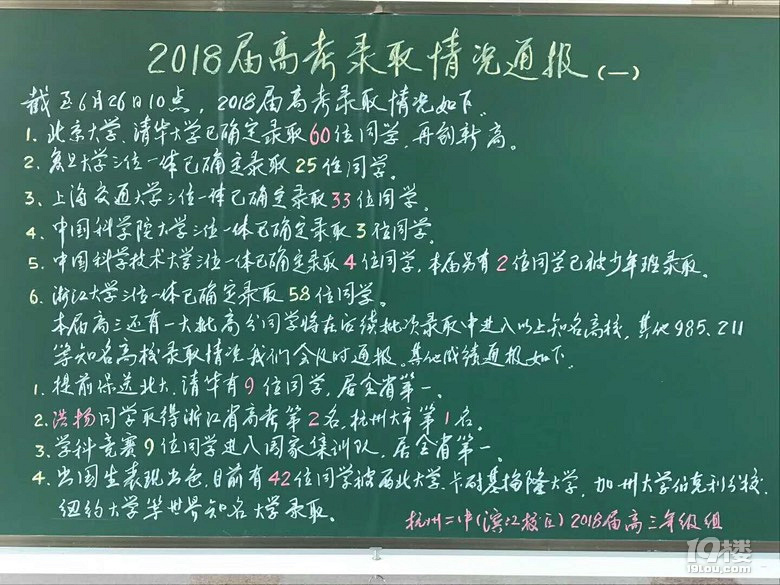 2018届高考录取情况通报(一)
截至6月26日10点，2018届高考录取情况如下。
1. 北京大学、清华大学已确定录取60位同学，再创新高。
2. 复旦大学三位一体已确定录取25位同学。
3. 上海交通大学三位一体已确定录取33位同学。
4. 中国科学院大学三位一体已确定录取3位同学。
5. 中国科学技术大学三位一体已确定录取4位同学，本届另有2位同学已被少年班录取。
6. 浙江大学三位一体已确定录取58位同学。
本届高三还有一大批高分同学将在后续批次录取中进入以上知名高校，其他985、211
等知名高校录取情况我们会及时通报。其他成绩通报如下。
1. 提前保送北大、清华有9位同学，居全省第一。
2. 洪扬同学取得浙江省高考第2名，杭州大市第1名。
3. 学科竞赛9位同学进入国家集训队，居全省第一。
4. 出国生表现出色，目前有42位同学被西北大学、卡耐基梅隆大学、加州大学伯克利分校、
纽约大学等世界知名大学录取。
杭州二中(滨江校区)2018届高三年级组
19楼
19lou.com